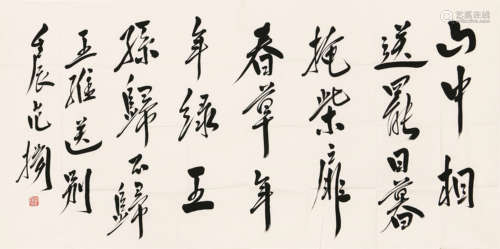 山中相
送罷日暮
掩柴扉
春草年
年綠王
孫歸不歸
王維送別
壬辰范擴